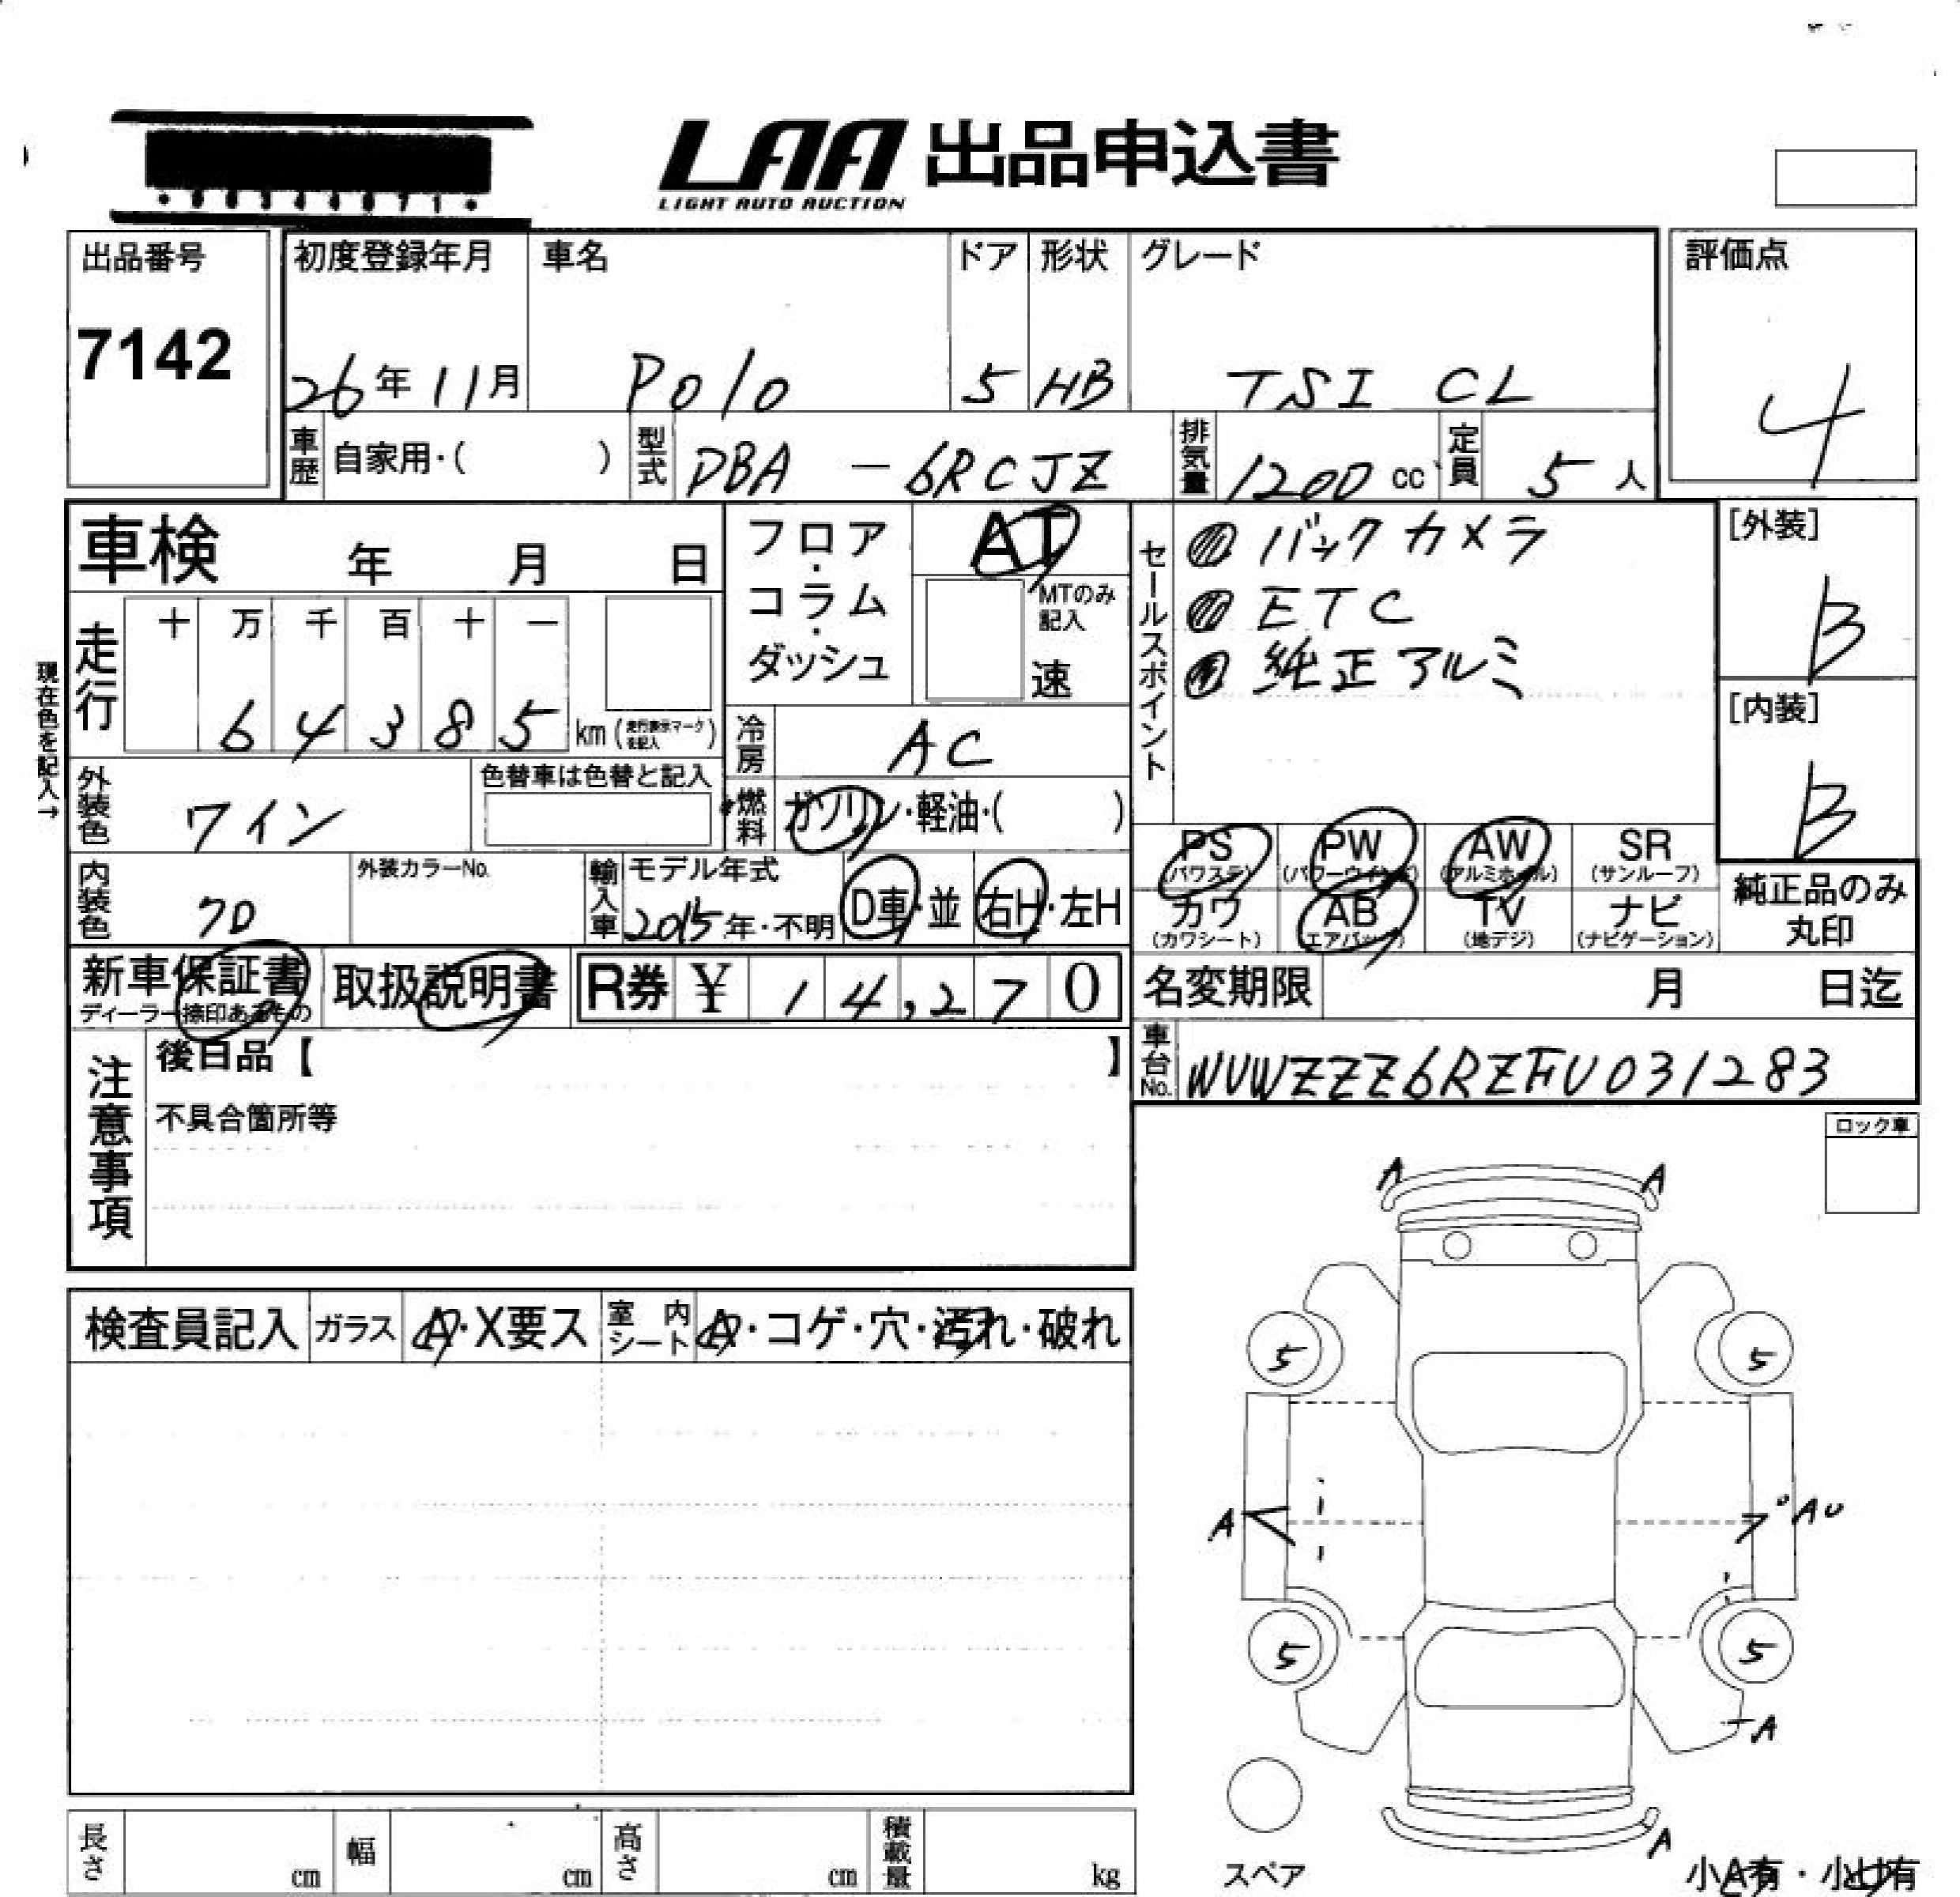 LAA 出品申込書
LIGHT AUTO AUCTION
出品番号
7142
初度登録年月
26年11月
車名
Polo
ドア
5
形状
HB
グレード
TSI CL
評価点
4
車歴 自家用・( )
型式 DBA-6RCJZ
排気量 1200 cc
定員 5 人
車検 年 月 日
フロア・コラム・ダッシュ
AT
MTのみ記入
速
セールスポイント
① バックカメラ
② ETC
③ 純正アルミ
[外装]
B
[内装]
B
現在色を記入→
走行
十 万 千 百 十 一
6 4 3 8 5 km (走行表示マークを記入)
冷房 AC
外装色 ワイン
色替車は色替と記入
燃料 ガソリン・軽油・( )
内装色 クロ
外装カラーNo.
輸入車
モデル年式
2015年・不明
D車・並
右H・左H
PS (パワステ)
PW (パワーウインド)
AW (アルミホイル)
SR (サンルーフ)
カワ (カワシート)
AB (エアバッグ)
TV (地デジ)
ナビ (ナビゲーション)
純正品のみ
丸印
新車保証書
ディーラー捺印あるもの
取扱説明書
R券 ¥ 14,270
名変期限 月 日迄
車台No. WVWZZZ6RZFU031283
注意事項
後日品【 】
不具合箇所等
ロック車
検査員記入
ガラス A・X要ス
室内シート A・コゲ・穴・汚れ・破れ
A A
5 5
A AU
5 5
A
A
スペア
小A有・小U有
長さ cm
幅 cm
高さ cm
積載量 kg